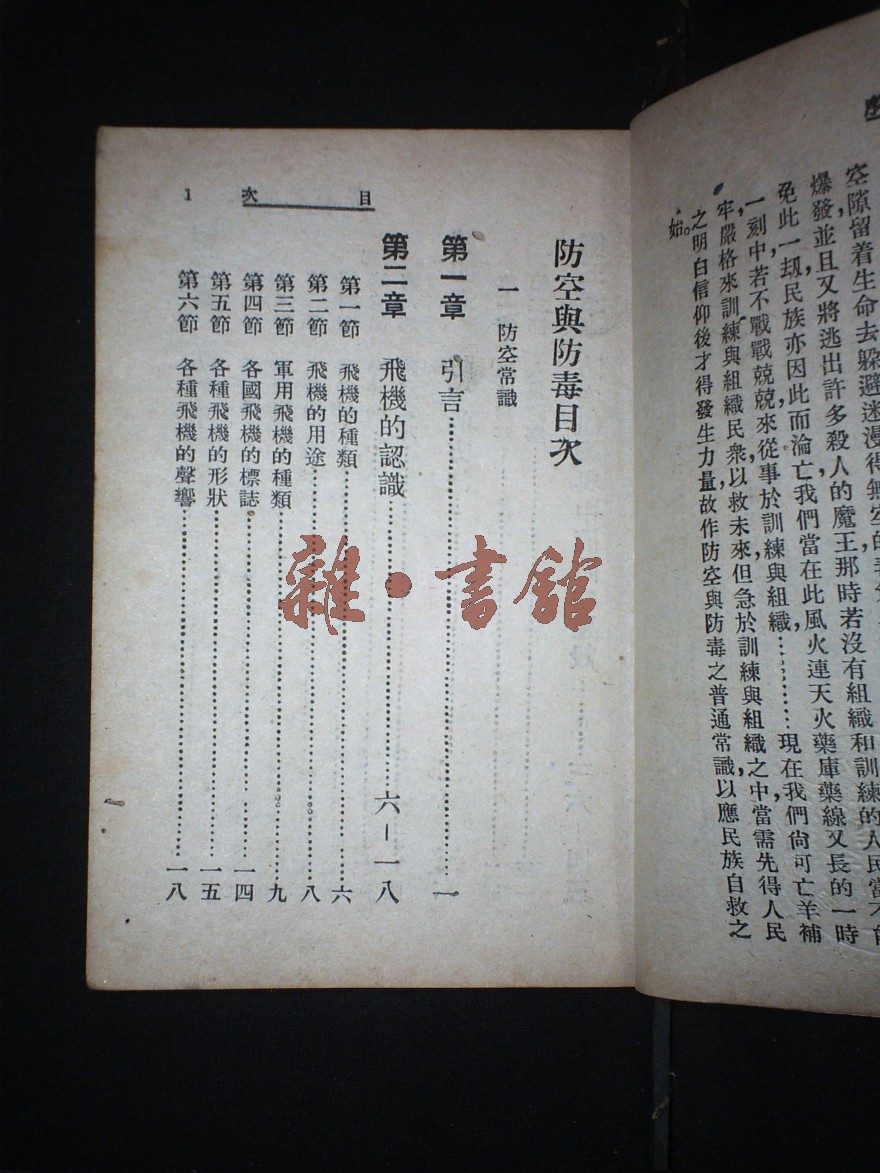 空隙留着生命去躱避迷漫得無空的毒
爆發並且又將逃出許多殺人的魔王那時若沒有組織和訓練的人民當不能
免此一刧民族亦因此而淪亡我們當在此風火連天火藥庫藥線又長的一時
一刻中若不戰戰兢兢來從事於訓練與組織………現在我們尙可亡羊補
牢嚴格來訓練與組織民衆以救未來但急於訓練與組織之中當需先得人民
之明白信仰後才得發生力量故作防空與防毒之普通常識，以應民族自救之
始。
目次 1
防空與防毒目次
一 防空常識
第一章 引言……一
第二章 飛機的認識……六－一八
第一節 飛機的種類……六
第二節 飛機的用途……八
第三節 軍用飛機的種類……九
第四節 各國飛機的標誌……一四
第五節 各種飛機的形狀……一五
第六節 各種飛機的聲響……一八
雜·書館